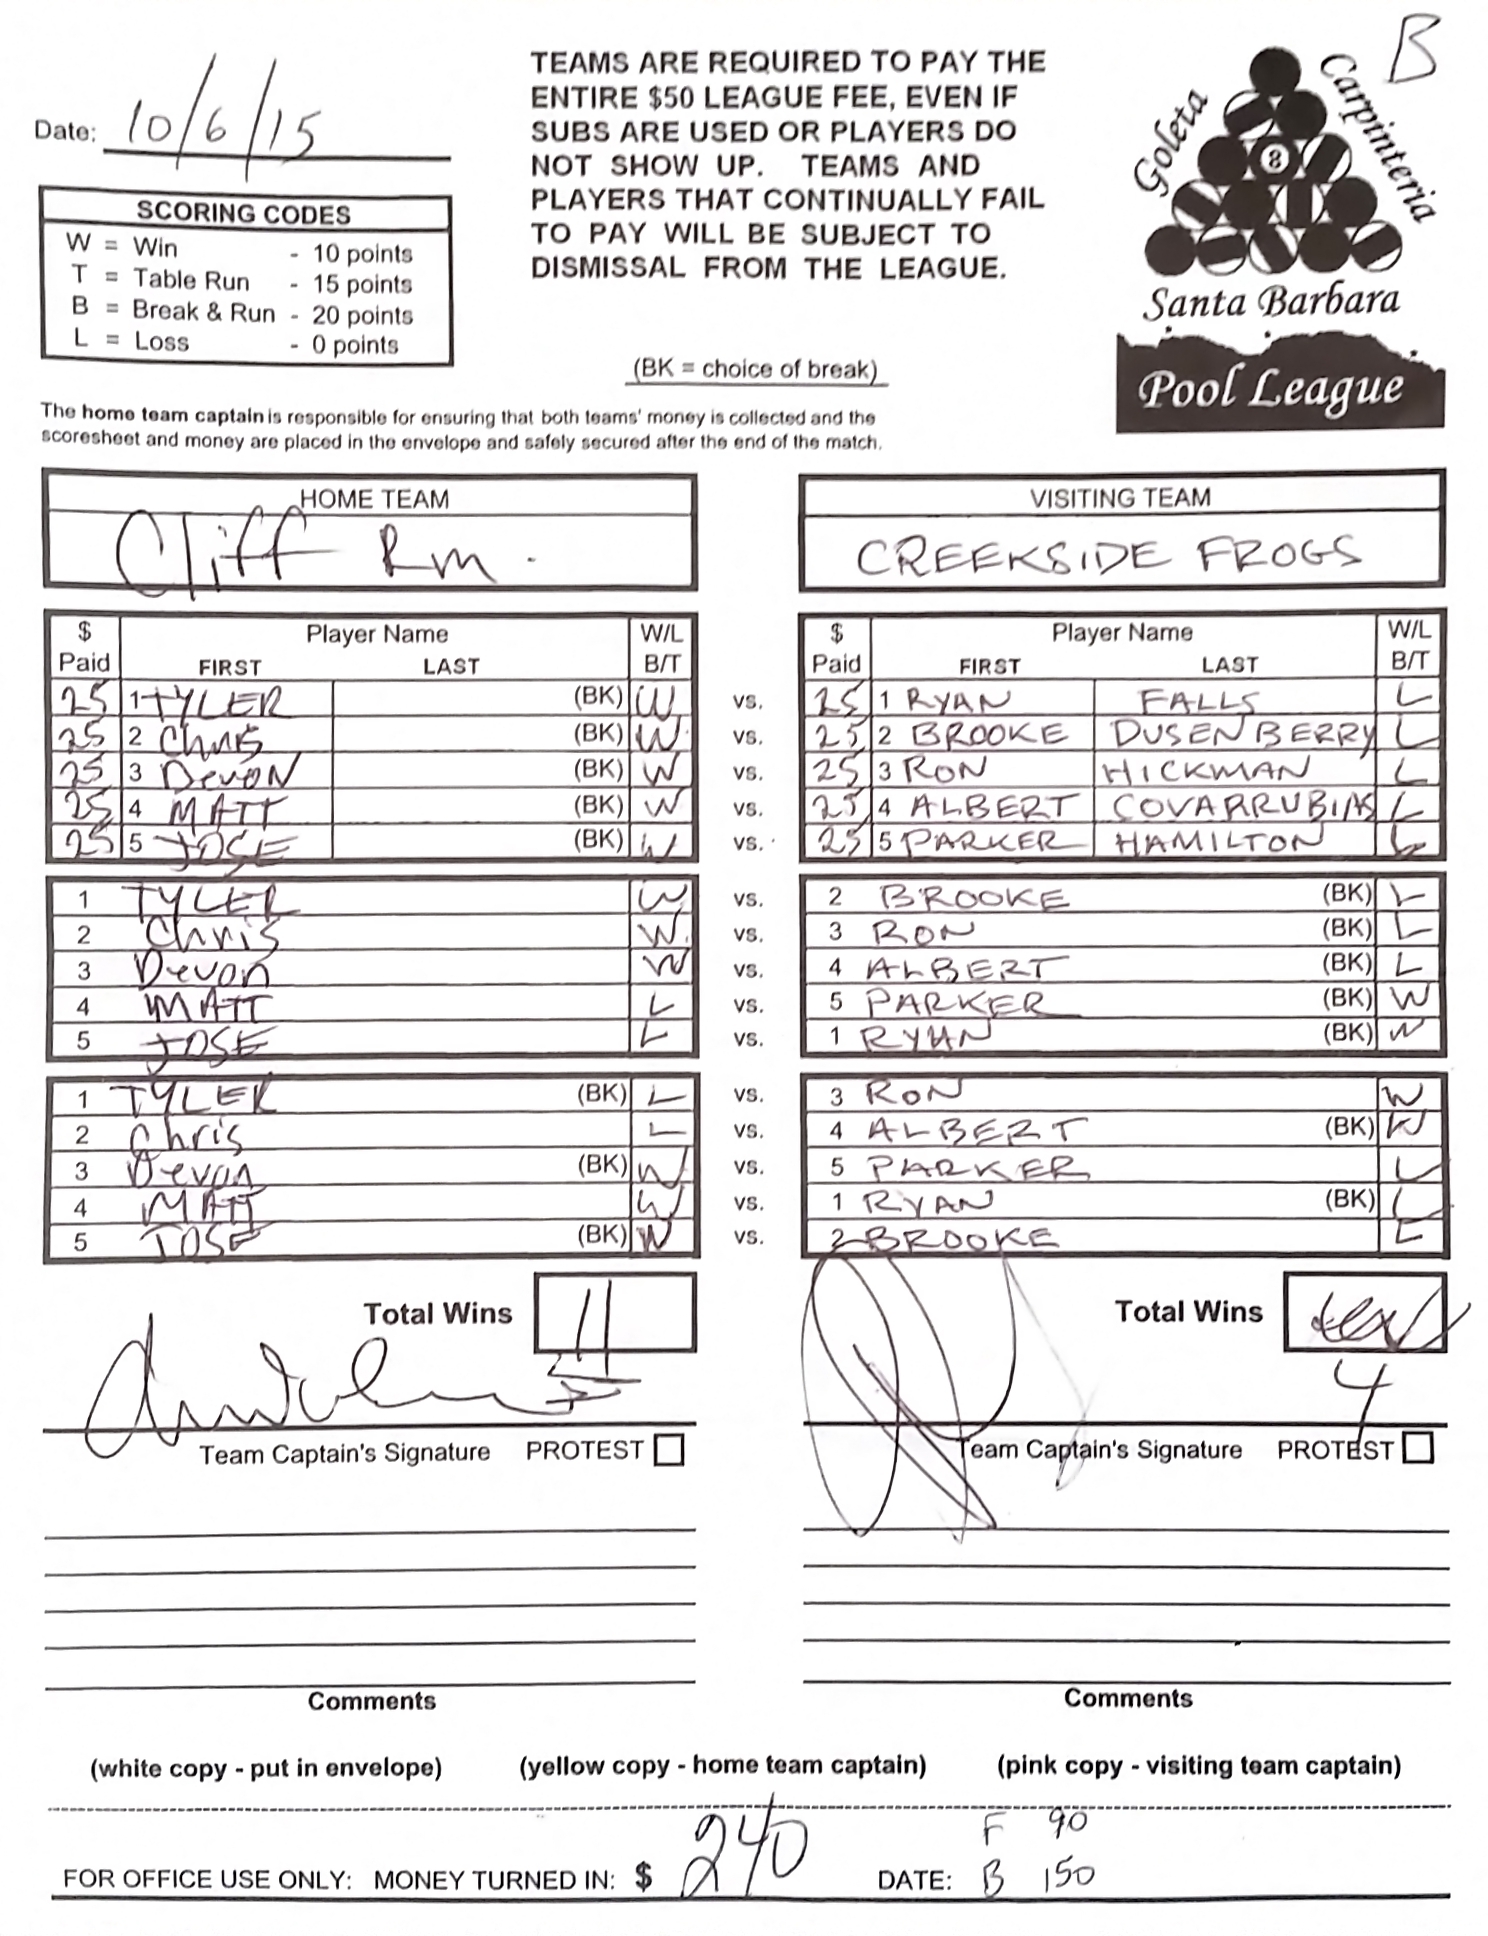 B
Date: 10/6/15
TEAMS ARE REQUIRED TO PAY THE
ENTIRE $50 LEAGUE FEE, EVEN IF
SUBS ARE USED OR PLAYERS DO
NOT SHOW UP. TEAMS AND
PLAYERS THAT CONTINUALLY FAIL
TO PAY WILL BE SUBJECT TO
DISMISSAL FROM THE LEAGUE.
Goleta Carpinteria
8
Santa Barbara
Pool League
SCORING CODES
W = Win - 10 points
T = Table Run - 15 points
B = Break & Run - 20 points
L = Loss - 0 points
(BK = choice of break)
The home team captain is responsible for ensuring that both teams' money is collected and the
scoresheet and money are placed in the envelope and safely secured after the end of the match.
HOME TEAM VISITING TEAM
Cliff Rm. CREEKSIDE FROGS
$ Player Name W/L $ Player Name W/L
Paid FIRST LAST B/T Paid FIRST LAST B/T
25 1 TYLER (BK) W vs. 25 1 RYAN FALLS L
25 2 Chris (BK) W vs. 25 2 BROOKE DUSENBERRY L
25 3 Devon (BK) W vs. 25 3 RON HICKMAN L
25 4 MATT (BK) W vs. 25 4 ALBERT COVARRUBIAS L
25 5 JOSE (BK) W vs. 25 5 PARKER HAMILTON L
1 TYLER W vs. 2 BROOKE (BK) L
2 Chris W vs. 3 RON (BK) L
3 Devon W vs. 4 ALBERT (BK) L
4 MATT L vs. 5 PARKER (BK) W
5 JOSE L vs. 1 RYAN (BK) W
1 TYLER (BK) L vs. 3 RON W
2 Chris L vs. 4 ALBERT (BK) W
3 Devon (BK) W vs. 5 PARKER L
4 MATT W vs. 1 RYAN (BK) L
5 JOSE (BK) W vs. 2 BROOKE L
Total Wins 11 Total Wins
4
Team Captain's Signature PROTEST Team Captain's Signature PROTEST
Comments Comments
(white copy - put in envelope) (yellow copy - home team captain) (pink copy - visiting team captain)
F 90
FOR OFFICE USE ONLY: MONEY TURNED IN: $ 240 DATE: B 150